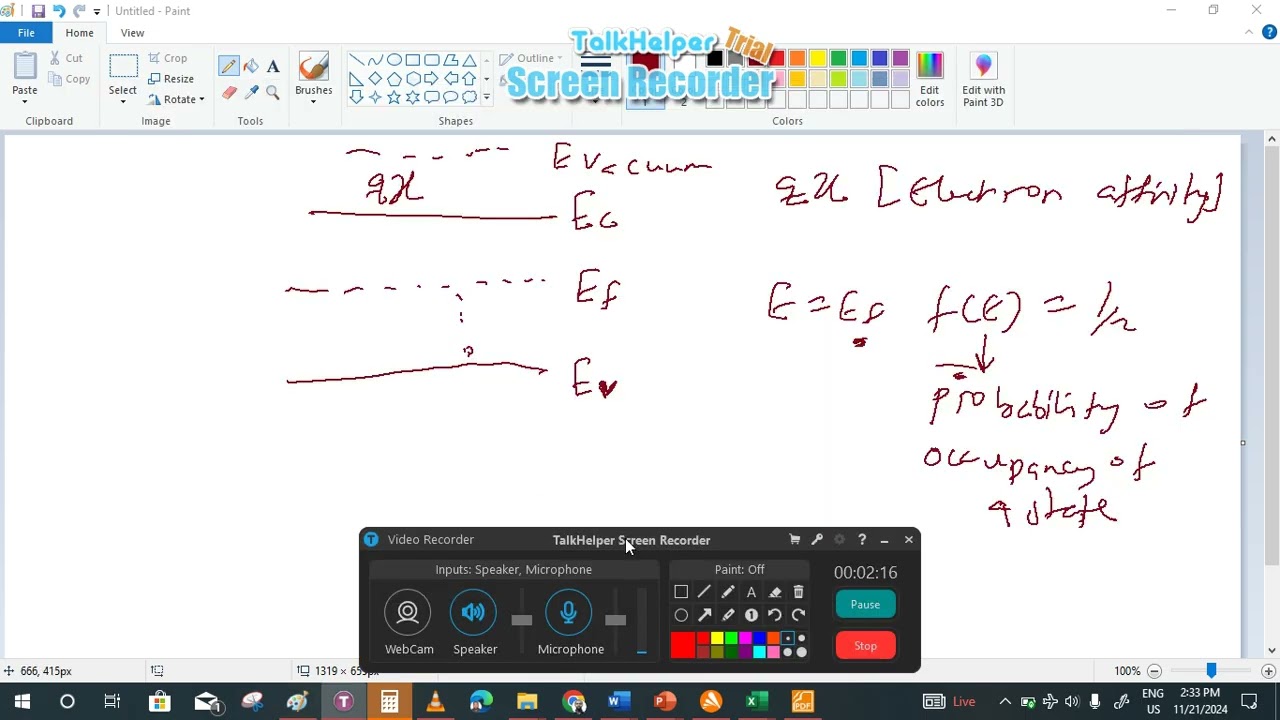 Untitled - Paint
File Home View
Paste
Cut
Copy
Clipboard
Select
Crop
Resize
Rotate
Image
Tools
Brushes
Shapes
Outline
1
2
Colors
Edit colors
Edit with Paint 3D
TalkHelper Trial
Screen Recorder
E vacuum
qχ
Ec
Ef
Ev
qχ [Electron affinity]
E = Ef f(E) = 1/2
probability of
occupancy of
a state
Video Recorder
TalkHelper Screen Recorder
Inputs: Speaker, Microphone
WebCam
Speaker
Microphone
Paint: Off
00:02:16
Pause
Stop
666, 415px
100%
Live
ENG
US
2:33 PM
11/21/2024